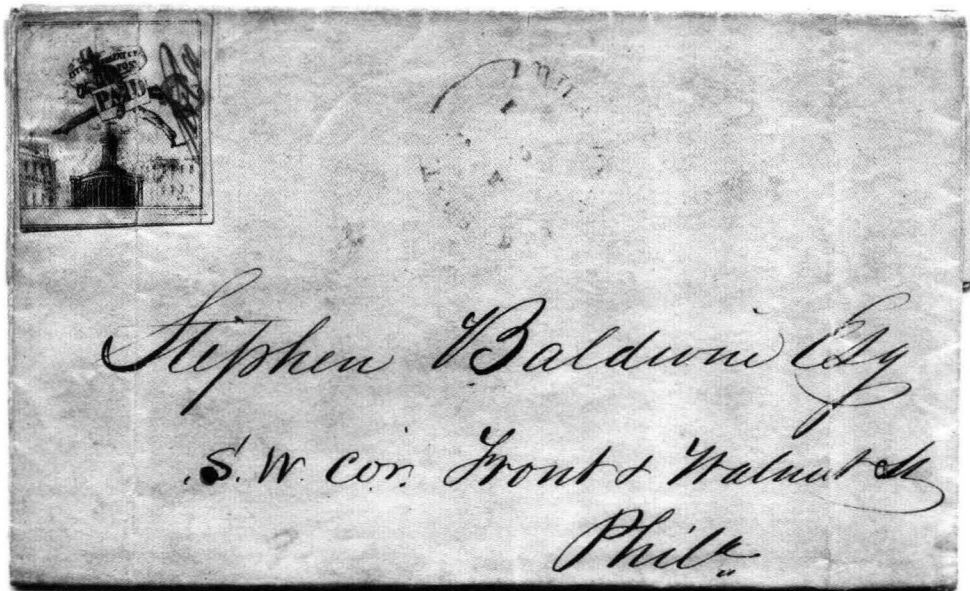 PAID
Stephen Baldwin Esq
S. W. cor. Front & Walnut St
Phila